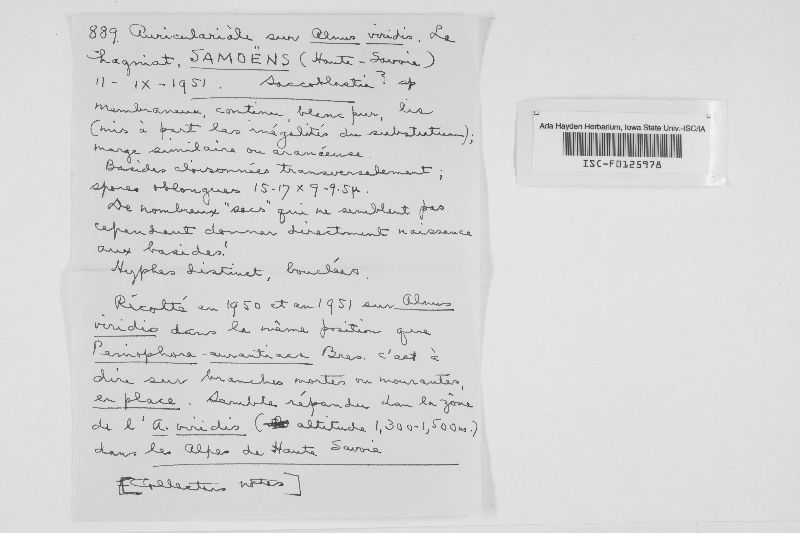 889. Auriculariale sur Alnus viridis. La
Chagniat, SAMOËNS (Haute-Savoie)
11-IX-1951. Saccoblastia? sp
membraneux, continu, blanc pur, lis
(mis à part les inégalités du substratum);
marge similaire ou aranéeuse.
Basides cloisonnées transversalement;
spores oblongues 15-17 x 9-9.5µ.
De nombreux "sacs" qui ne semblent pas
cependant donner directment naissance
aux basides!
Hyphes distinct, bouclées.
Récolté en 1950 et en 1951 sur Alnus
viridis dans la même position que
Peniophora aurantiaca Bres. c'est à
dire sur branches mortes ou mourantes,
en place. Semble répandu dan la zône
de l'A. viridis (altitude 1,300-1,500m.)
dans les Alpes de Haute Savoie
[Collectors notes]
Ada Hayden Herbarium, Iowa State Univ.-ISC/IA
ISC-F0125978